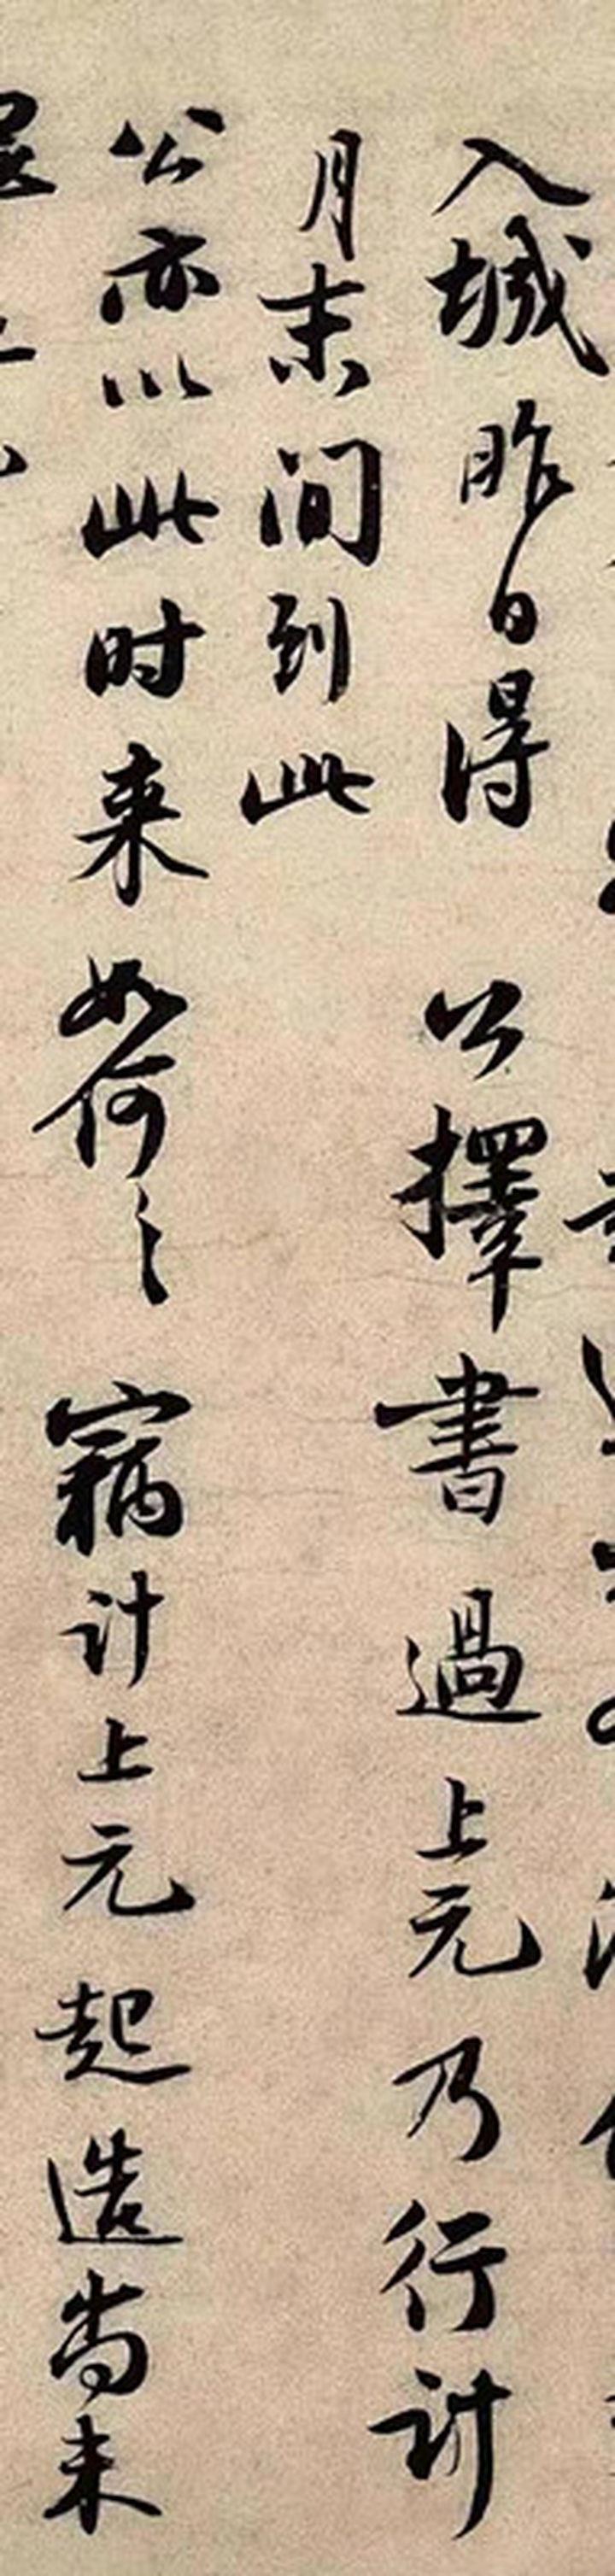 入城昨日得公擇書過上元乃行計
月末間到此
公亦以此时来如何〻竊计上元起造尚未